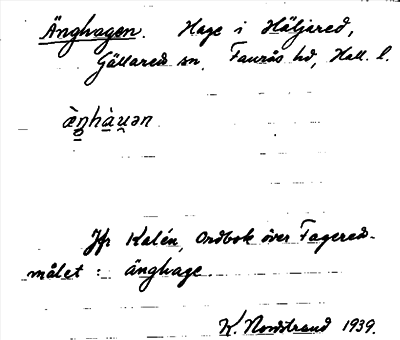 Änghagen. Hage i Häljared,
Gällareds sn, Faurås hd, Hall. l.
æ̀ŋhàu̯ən
Jfr Kalén, Ordbok över Fagered-
målet: änghage.
K. Nordstrand 1939.